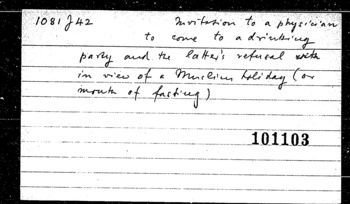 1081 J 42 Invitation to a physician
to come to a drinking
party and the latter's refusal with
in view of a Muslim holiday (or
month of fasting)
101103